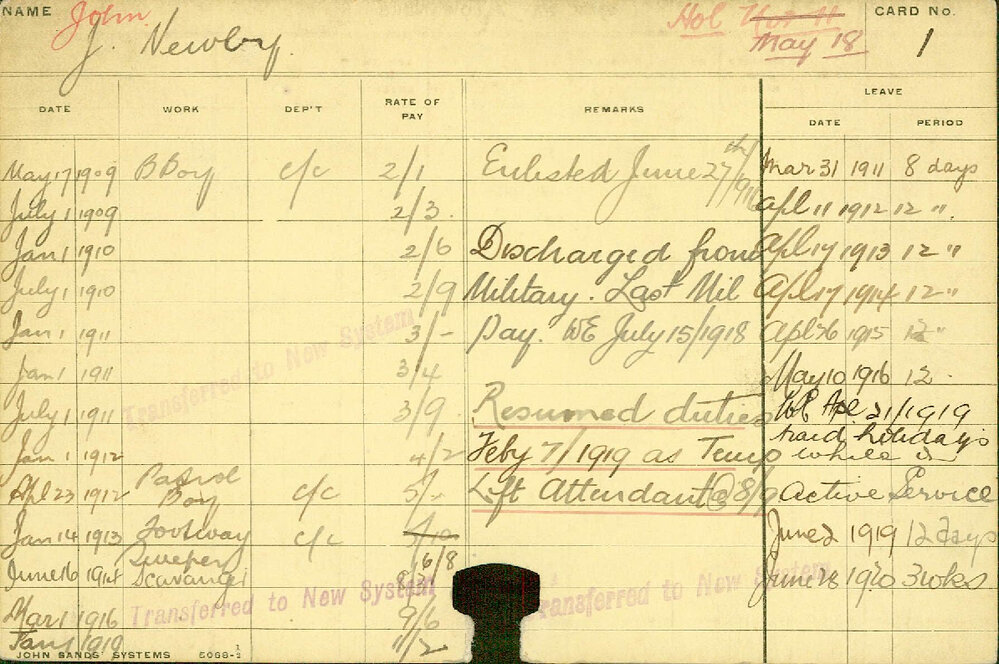 NAME John Hol May 18 CARD No.
J. Newby. 1
DATE WORK DEP'T RATE OF PAY REMARKS LEAVE
DATE PERIOD
May 17 1909 B Boy c/c 2/1 Enlisted June 27th/1916 Mar 31 1911 8 days
July 1 1909 2/3. Apl 11 1912 12 ".
Jan 1 1910 2/6 Discharged from Apl 17 1913 12 "
July 1 1910 2/9 Military. Last Mil Apl 17 1914 12 "
Jan 1 1911 3/- Pay. WE July 15/1918 Apl 26 1915 12 "
Jan 1 1911 3/4 May 10 1916 12 "
Transferred to New System
July 1 1911 3/9. Resumed duties Apl 21/1919
Jan 1 1912 4/2 Feby 7/1919 as Temp paid holidays while on
Apl 23 1912 Patrol Boy c/c 5/- Lift Attendant @ 8/9 Active Service
Jan 14 1913 Footway Sweeper c/c 6/8 June 2 1919 12 days
June 16 1914 Scavanger June 28 1920 3 wks
Transferred to New System Transferred to New System
Mar 1 1916 9/6
Jan 1 1919 11/2
JOHN SANDS' SYSTEMS 5068-